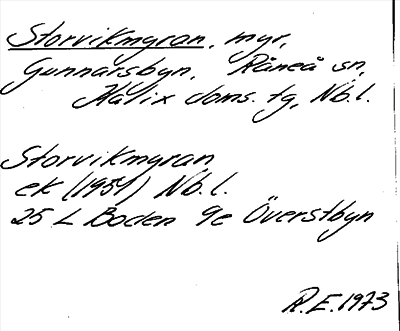 Storvikmyran, myr,
Gunnarsbyn, Råneå sn,
Kalix doms. tg, Nb.l.
Storvikmyran
ek (1951) Nb.l.
25 L Boden 9e Överstbyn
R.E. 1973